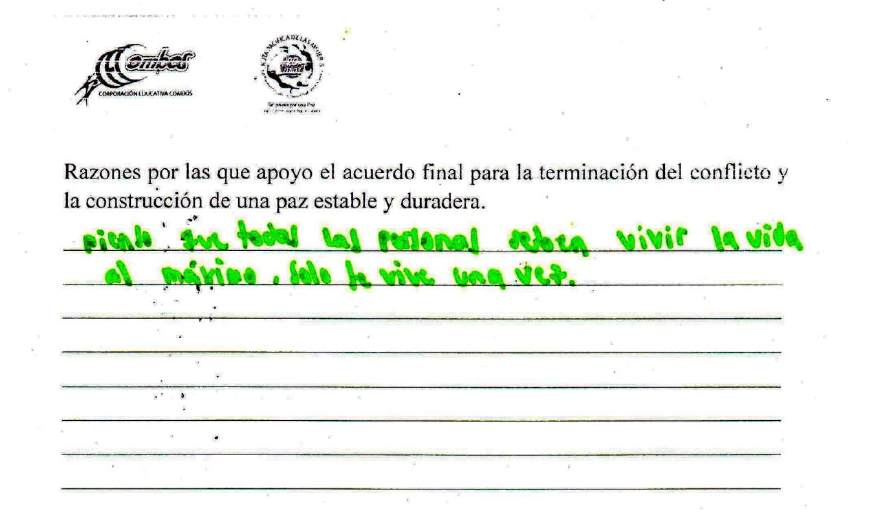 Combos
CORPORACIÓN EDUCATIVA COMBOS
Razones por las que apoyo el acuerdo final para la terminación del conflicto y
la construcción de una paz estable y duradera.
pienso que todas las personas deben vivir la vida
al máximo, solo se vive una vez.